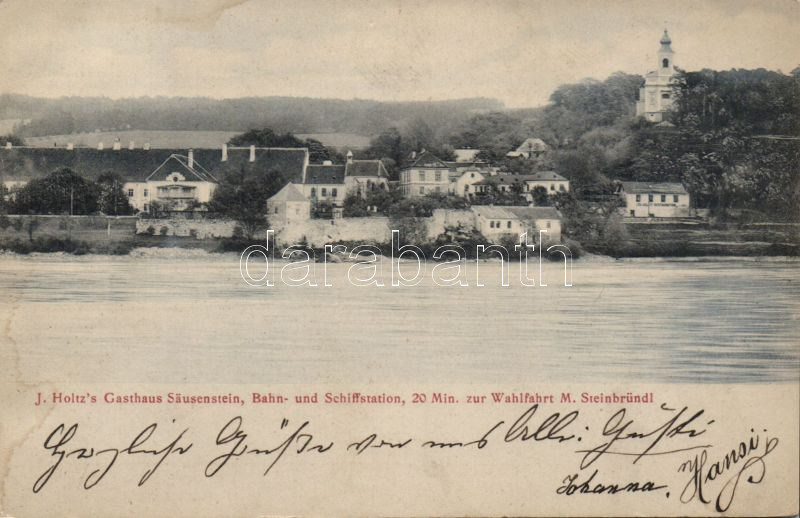 darabanth
J. Holtz's Gasthaus Säusenstein, Bahn- und Schiffstation, 20 Min. zur Wahlfahrt M. Steinbründl
Herzliche Grüße von uns Alle: Gusti
Johanna, Hansi